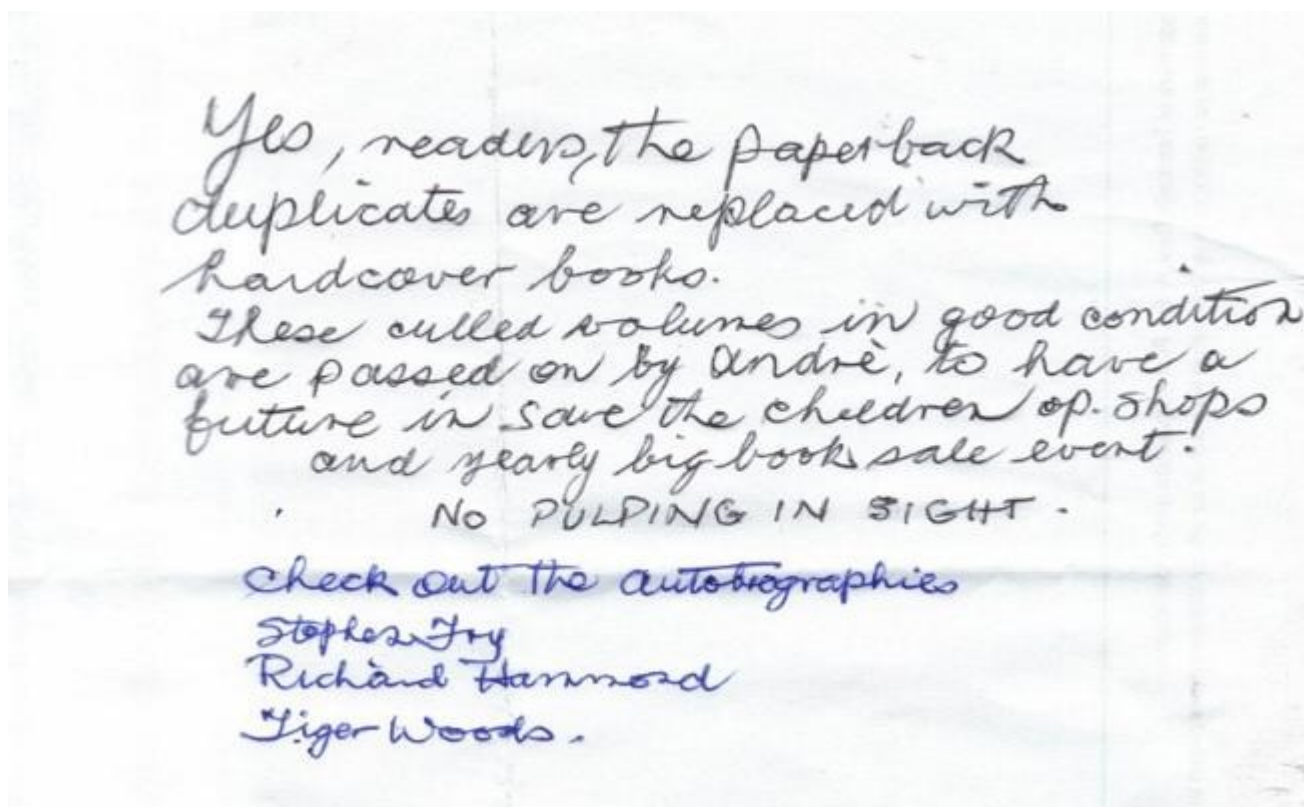 Yes, readers, the paperback
duplicates are replaced with
hardcover books.
These culled volumes in good condition
are passed on by Andrè, to have a
future in Save the Children op. shops
and yearly big book sale event.
NO PULPING IN SIGHT.
Check out the autobiographies
Stephen Fry
Richard Hammond
Tiger Woods.